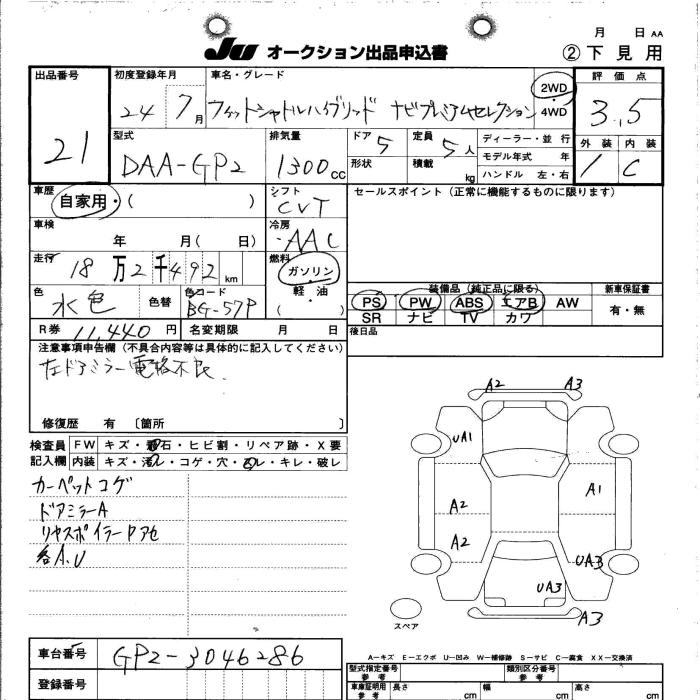 月 日 AA
JU オークション出品申込書 ② 下見用
出品番号 初度登録年月 車名・グレード 評価点
21 24 7月 フィットシャトルハイブリッド ナビプレミアムセレクション 2WD 4WD 3.5
型式 排気量 ドア 5 定員 5人 ディーラー・並行 外装 内装
DAA-GP2 1300cc 形状 積載 kg モデル年式 年 1 C
ハンドル 左・右
車歴 シフト セールスポイント(正常に機能するものに限ります)
自家用・( ) CVT
車検 冷房
年 月( 日) AAC
走行 燃料
18万2千492km ガソリン・軽油
色 色替 色コード ( )
水色 BG-57P
装備品(純正品に限る) 新車保証書
PS PW ABS エアB AW 有・無
SR ナビ TV カワ
R券 11,440円 名変期限 月 日 後日品
注意事項申告欄(不具合内容等は具体的に記入してください)
左ドアミラー電格不良
修復歴 有 〔箇所 〕
検査員 FW キズ・飛石・ヒビ割・リペア跡・X要
記入欄 内装 キズ・汚レ・コゲ・穴・スレ・キレ・破レ
カーペットコゲ
ドアミラーA
リヤスポイラーPアセ
各A.U
A2 A3
UA1
A1
A2
A2
UA3
UA3
A3
スペア
A-キズ E-エクボ U-凹み W-補修跡 S-サビ C-腐食 XX-交換済
車台番号 GP2-3046286
型式指定番号 参考 類別区分番号 参考
登録番号
車庫証明用 参考 長さ cm 幅 cm 高さ cm